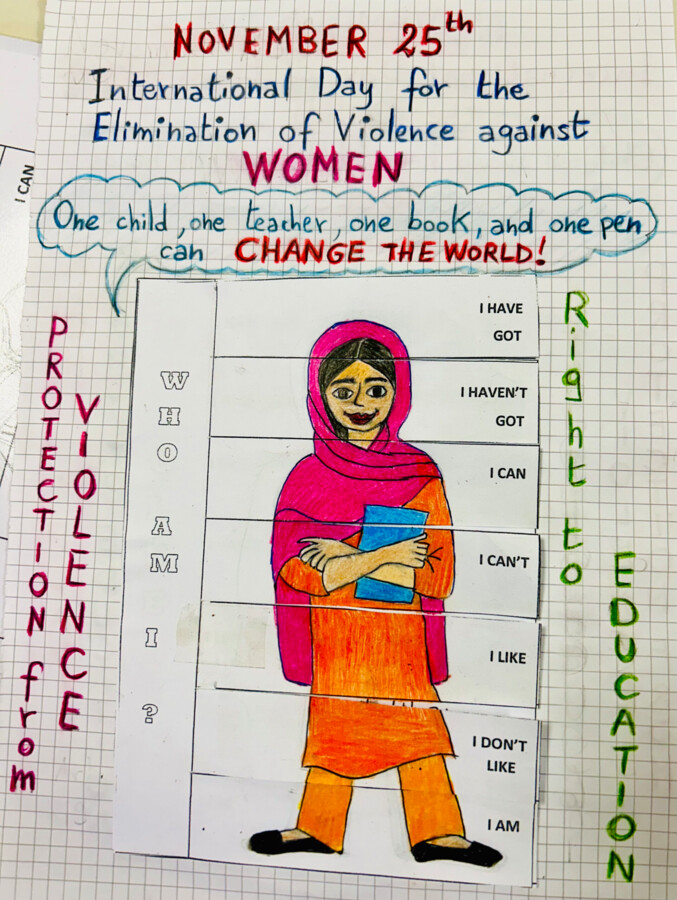 NOVEMBER 25th
International Day for the
Elimination of Violence against
WOMEN
One child, one teacher, one book, and one pen
can CHANGE THE WORLD!
I CAN
PROTECTION from
VIOLENCE
WHO AM I ?
I HAVE
GOT
I HAVEN'T
GOT
I CAN
I CAN'T
I LIKE
I DON'T
LIKE
I AM
Right to
EDUCATION